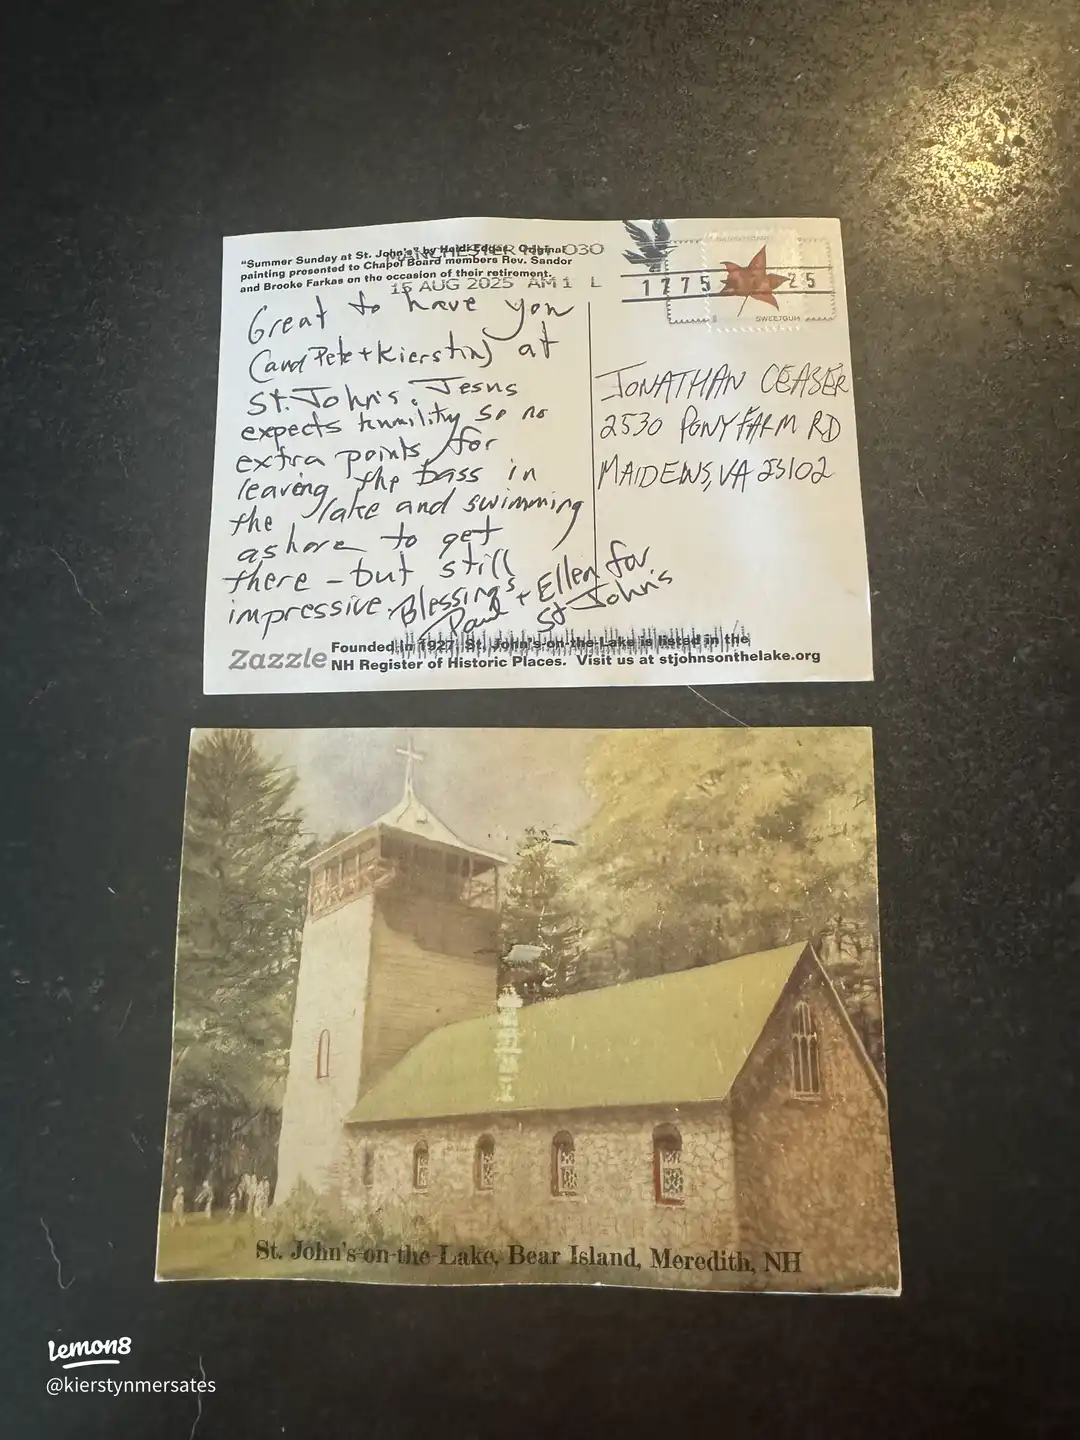 "Summer Sunday at St. John's" by Heidi Edgar. Original
painting presented to Chapel Board members Rev. Sandor
and Brooke Farkas on the occasion of their retirement.
MANCHESTER NH 030
15 AUG 2025 AM 1 L
1775 2025
SWEETGUM
Great to have you
(and Pete + Kierstin) at
St. John's. Jesus
expects humility so no
extra points for
leaving the bass in
the lake and swimming
ashore to get
there – but still
impressive. Blessings
Paul + Ellen for
St John's
JONATHAN CEASER
2530 PONY FARM RD
MAIDENS, VA 23102
Zazzle
Founded in 1927, St. John's-on-the-Lake is listed in the
NH Register of Historic Places. Visit us at stjohnsonthelake.org
St. John's-on-the-Lake, Bear Island, Meredith, NH
lemon8
@kierstynmersates